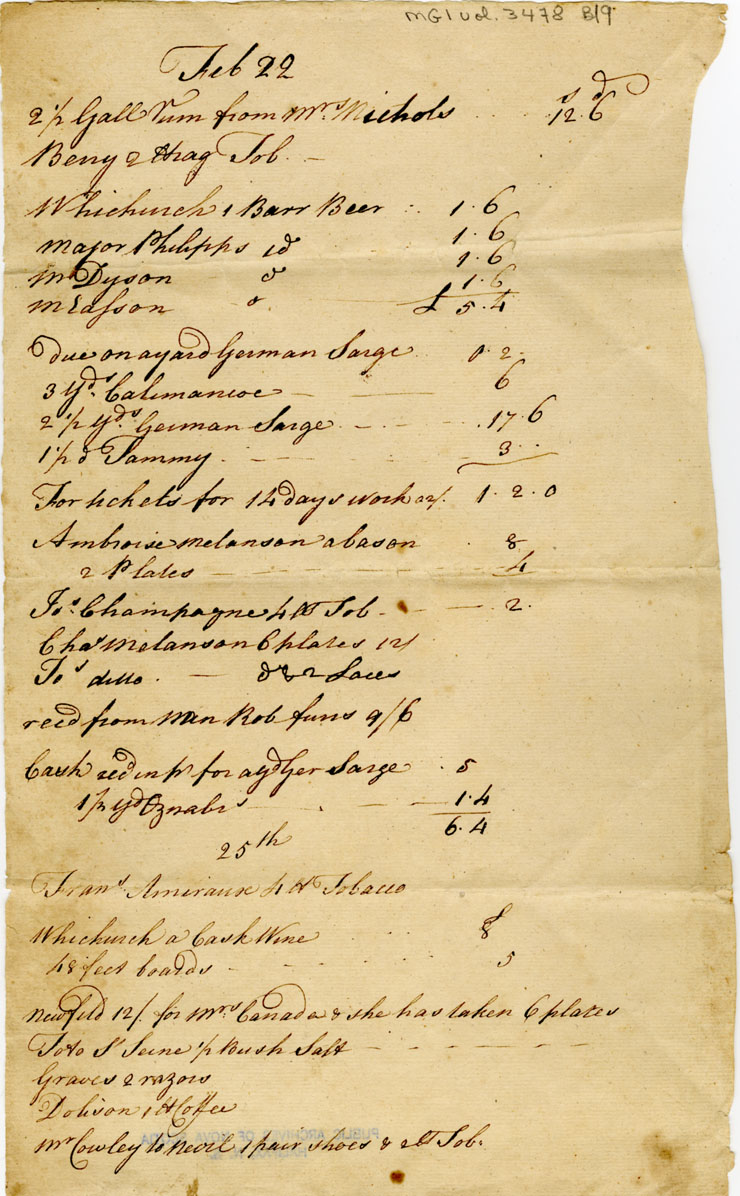 MG1 vol. 3478 B/9
Feb 22
s d
2 1/2 Gall Rum from Mrs. Nichols 12.6
Berry 2 lb rag Tob.
Whichurch 1 Barr Beer 1.6
Major Philipps 1 do 1.6
Mr Dyson do 1.6
Mr Easson do 1.6
£ 5.4
due on a yard German Sarge 0.2.
3 Yds. Calimancoe 6
2 1/2 Yds. German Sarge 17.6
1 1/2 d Tammy 3
For tickets for 14 days work a 2/. 1.2.0
Ambroise Melanson a bason 8
2 Plates 4
Jos. Champagne 4 lb Tob 2.
Chas Melanson 6 plates 12/
Jos ditto do & 2 Laces
recd from Wm Rob funs 9/6
Cash recd in pt for a yd Ger Sarge 5
1 1/2 yd Oznabrs 1.4
6.4
25th
Frans Amiraux 4 lb Tobacco
s
Whichurch a Cask Wine 8
48 feet boards 5
Newfild 12/. for Mrs Canada & she has taken 6 plates
Toto St Seine 1/2 Bush Salt
Graves 2 razors
Dobson 1 lb Coffee
Mr Cowley to Nevil 1 pair shoes & 2 lb Tob.
PUBLIC ARCHIVES OF NOVA SCOTIA